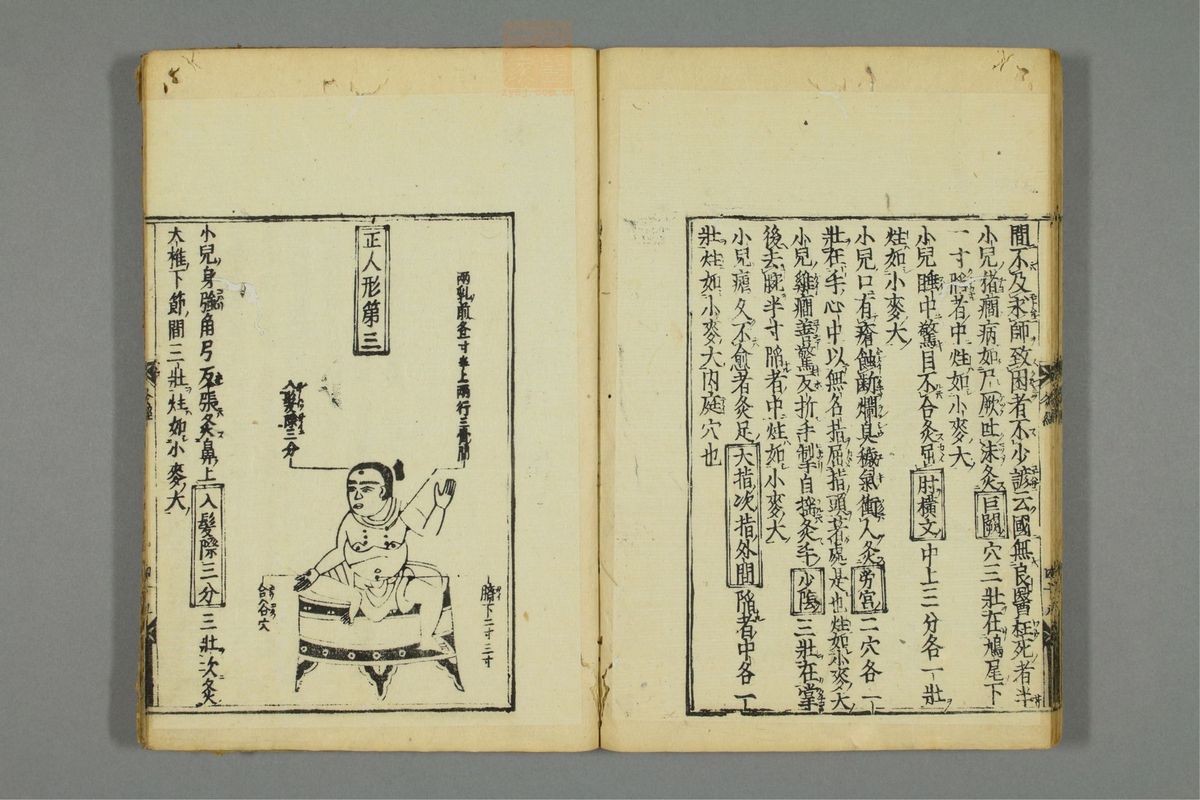 間不及求師致困者不少諺云國無良醫枉死者半
小兒猪癇病如尸厥吐沫灸巨闕穴三壯在鳩尾下
一寸陷者中炷如小麥大
小兒睡中驚目不合灸屈肘橫文中上三分各一壯
炷如小麥大
小兒口有瘡蝕齗爛臭穢氣衝人灸労宮二穴各一
壯在手心中以無名指屈指頭著處是也炷如小麥大
小兒雞癇善驚反折手掣自搐灸手少陰三壯在掌
後去腕半寸陷者中炷如小麥大
小兒瘧久不愈者灸足大指次指外間陷者中各一
壯炷如小麥大内庭穴也
兩乳前各寸半上兩行三骨間
正人形第三
入髮際三分
臍下二寸三寸
合谷穴
小兒身強角弓反張灸鼻上入髮際三分三壯次灸
大椎下節間三壯炷如小麥大